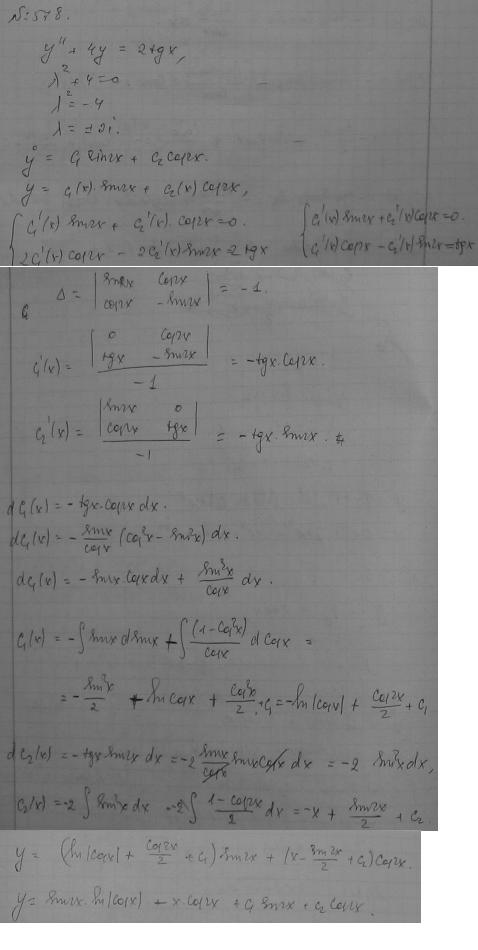 №: 578.
y'' + 4y = 2tgx,
λ² + 4 = 0.
λ² = -4
λ = ±2i.
y⁰ = C₁ sin2x + C₂ cos2x.
y = C₁(x) · sin2x + C₂(x) cos2x,
{ C₁'(x) sin2x + C₂'(x) · cos2x = 0. { C₁'(x) sin2x + C₂'(x) cos2x = 0.
2C₁'(x) cos2x - 2C₂'(x) sin2x = 2tgx C₁'(x) cos2x - C₂'(x) sin2x = tgx
Δ = | sin2x cos2x | = -1.
| cos2x -sin2x |
C₁'(x) = | 0 cos2x | = -tgx · cos2x.
| tgx -sin2x |
-1
C₂'(x) = | sin2x 0 | = -tgx · sin2x.
| cos2x tgx |
-1
dC₁(x) = -tgx · cos2x dx.
dC₁(x) = - sinx/cosx (cos²x - sin²x) dx.
dC₁(x) = -sinx cosx dx + sin³x/cosx dx.
C₁(x) = -∫ sinx dsinx + ∫ (1-cos²x)/cosx dcosx =
= - sin²x/2 + ln cosx + cos²x/2 + C₁ = -ln|cosx| + cos2x/2 + C₁
dC₂(x) = -tgx · sin2x dx = -2 sinx/cosx sinx cosx dx = -2 sin²x dx,
C₂(x) = -2 ∫ sin²x dx -2 ∫ (1-cos2x)/2 dx = -x + sin2x/2 + C₂.
y = (ln|cosx| + cos2x/2 + C₁) sin2x + (x - sin2x/2 + C₂) cos2x.
y = sin2x · ln|cosx| - x · cos2x + C₁ sin2x + C₂ cos2x.